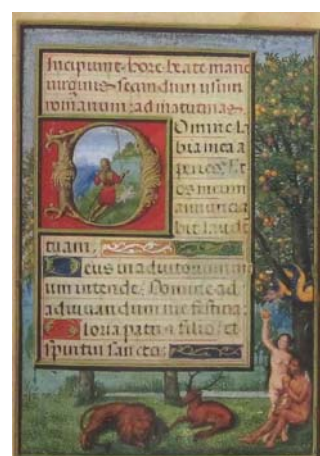 Incipiunt hore beate marie
virginis secundum usum
romanum: ad matutinas
Domine la
bia mea a
peries. Et
os meum
annuncia
bit laude
tuam.
Deus in adiutorium me
um intende. Domine ad
adiuvandum me festina.
Gloria patri et filio et
spiritui sancto.